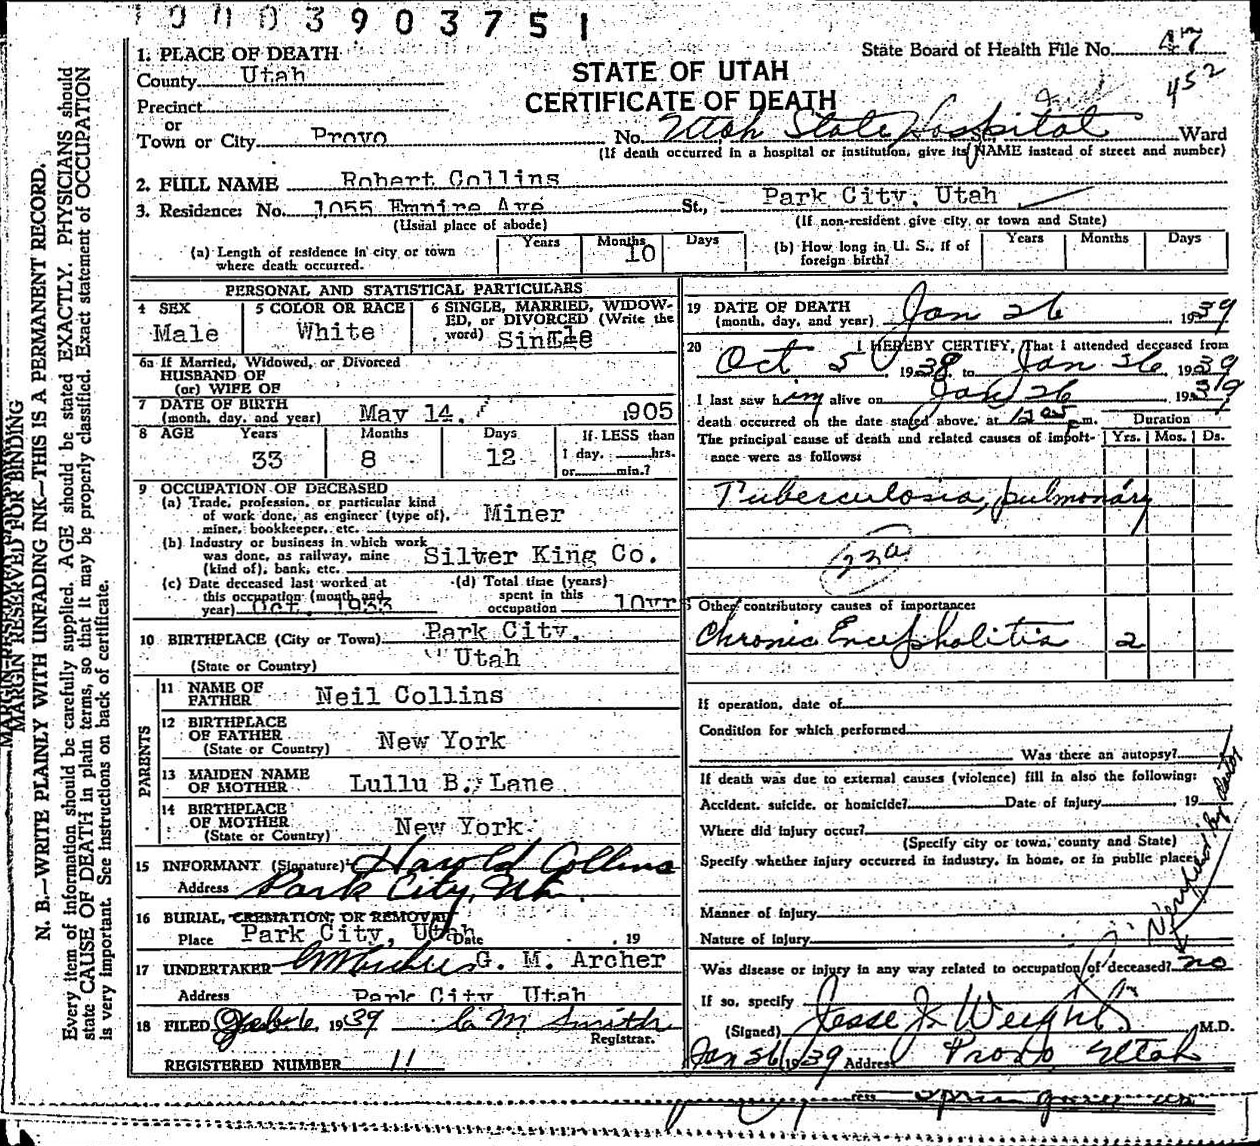 10003903751
State Board of Health File No. 47
452
1. PLACE OF DEATH
County Utah
STATE OF UTAH
CERTIFICATE OF DEATH
Precinct
or
Town or City Provo No. Utah State Hospital Ward
(If death occurred in a hospital or institution, give its NAME instead of street and number)
2. FULL NAME Robert Collins
3. Residence: No. 1055 Empire Ave St., Park City, Utah
(Usual place of abode) (If non-resident give city or town and State)
(a) Length of residence in city or town where death occurred. Years Months 10 Days
(b) How long in U. S., if of foreign birth? Years Months Days
PERSONAL AND STATISTICAL PARTICULARS
4 SEX Male
5 COLOR OR RACE White
6 SINGLE, MARRIED, WIDOWED, or DIVORCED (Write the word) Single
6a If Married, Widowed, or Divorced
HUSBAND OF
(or) WIFE OF
7 DATE OF BIRTH (month, day, and year) May 14, 1905
8 AGE Years 33 Months 8 Days 12 If LESS than 1 day, hrs. or min.?
9 OCCUPATION OF DECEASED
(a) Trade, profession, or particular kind of work done, as engineer (type of), miner, bookkeeper, etc. Miner
(b) Industry or business in which work was done, as railway, mine (kind of), bank, etc. Silver King Co.
(c) Date deceased last worked at this occupation (month and year) Oct. 1933
(d) Total time (years) spent in this occupation 10yrs
10 BIRTHPLACE (City or Town) Park City,
(State or Country) Utah
PARENTS
11 NAME OF FATHER Neil Collins
12 BIRTHPLACE OF FATHER (State or Country) New York
13 MAIDEN NAME OF MOTHER Lullu B. Lane
14 BIRTHPLACE OF MOTHER (State or Country) New York
15 INFORMANT (Signature) Harold Collins
Address Park City, Ut.
16 BURIAL, CREMATION, OR REMOVAL
Place Park City, Utah Date , 19
17 UNDERTAKER G. M. Archer
Address Park City Utah
18 FILED Feb 6 1939 C M Smith
Registrar.
REGISTERED NUMBER 11
19 DATE OF DEATH (month, day, and year) Jan 26 1939
20 I HEREBY CERTIFY, That I attended deceased from
Oct 5 1938, to Jan 26, 1939
I last saw him alive on Jan 26, 1939
death occurred on the date stated above, at 12 05 p.m.
Duration
The principal cause of death and related causes of importance were as follows: Yrs. Mos. Ds.
Tuberculosis, pulmonary
23a
Other contributory causes of importance:
Chronic Encephalitis 2
If operation, date of
Condition for which performed
Was there an autopsy?
If death was due to external causes (violence) fill in also the following:
Accident, suicide, or homicide? Date of injury 19
Where did injury occur?
(Specify city or town, county and State)
Specify whether injury occurred in industry, in home, or in public place.
Manner of injury
Nature of injury
Verified by letter
Was disease or injury in any way related to occupation of deceased? no
If so, specify
(Signed) Jesse J. Weight M.D.
Jan 26 1939 Address Provo Utah
MARGIN RESERVED FOR BINDING
N. B.—WRITE PLAINLY WITH UNFADING INK—THIS IS A PERMANENT RECORD.
Every item of information should be carefully supplied. AGE should be stated EXACTLY. PHYSICIANS should
state CAUSE OF DEATH in plain terms, so that it may be properly classified. Exact statement of OCCUPATION
is very important. See instructions on back of certificate.